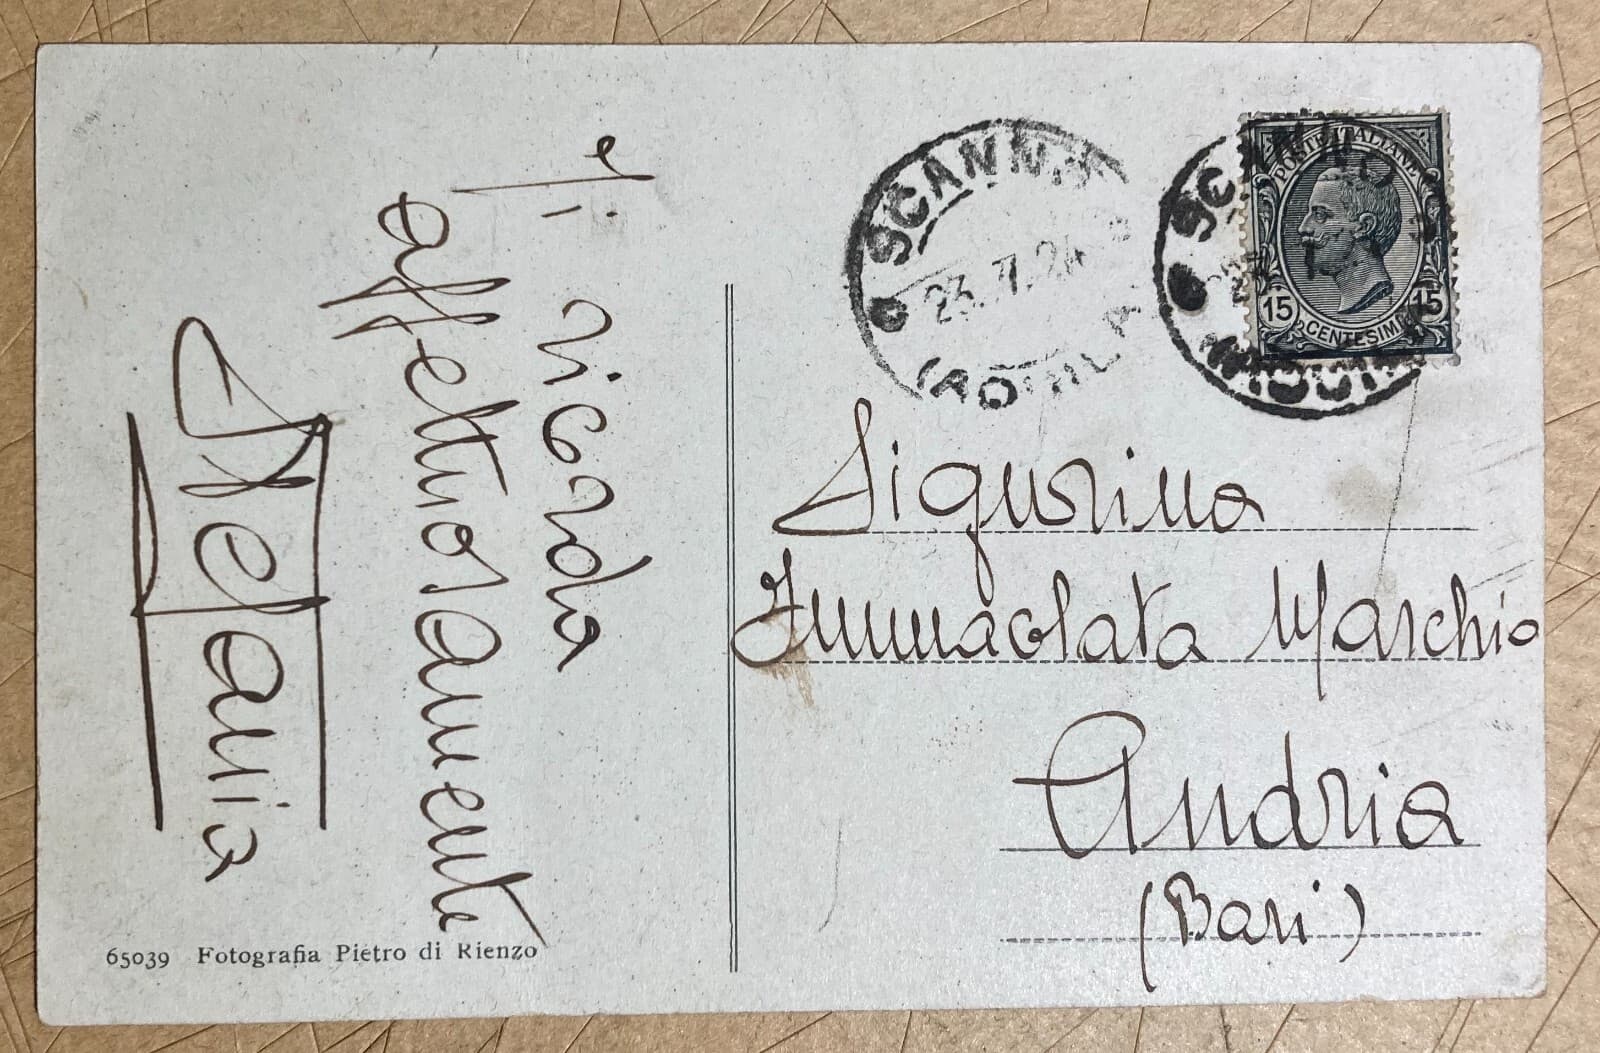 Ti ricorda
affettuosamente
65039 Fotografia Pietro di Rienzo
SCANNO
23.7.24
(AQUILA)
SCANNO
POSTE ITALIANE
15 CENTESIMI 15
Signorina
Immacolata Marchio
Andria
(Bari)